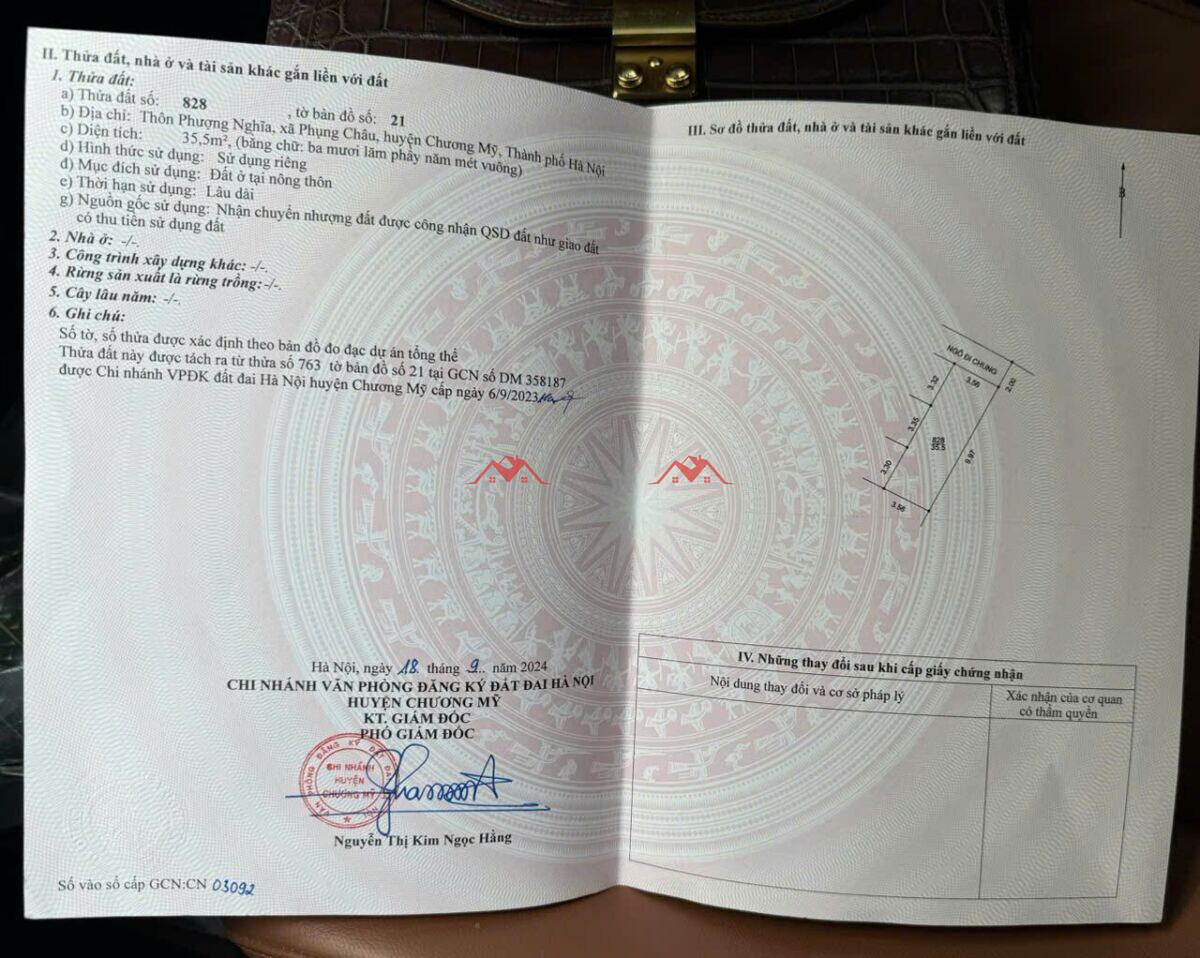 II. Thửa đất, nhà ở và tài sản khác gắn liền với đất
1. Thửa đất:
a) Thửa đất số: 828 , tờ bản đồ số: 21
b) Địa chỉ: Thôn Phượng Nghĩa, xã Phụng Châu, huyện Chương Mỹ, Thành phố Hà Nội
c) Diện tích: 35,5m², (bằng chữ: ba mươi lăm phẩy năm mét vuông)
d) Hình thức sử dụng: Sử dụng riêng
đ) Mục đích sử dụng: Đất ở tại nông thôn
e) Thời hạn sử dụng: Lâu dài
g) Nguồn gốc sử dụng: Nhận chuyển nhượng đất được công nhận QSD đất như giao đất
có thu tiền sử dụng đất
2. Nhà ở: -/-.
3. Công trình xây dựng khác: -/-.
4. Rừng sản xuất là rừng trồng: -/-.
5. Cây lâu năm: -/-.
6. Ghi chú:
Số tờ, số thửa được xác định theo bản đồ đo đạc dự án tổng thể
Thửa đất này được tách ra từ thửa số 763 tờ bản đồ số 21 tại GCN số DM 358187
được Chi nhánh VPĐK đất đai Hà Nội huyện Chương Mỹ cấp ngày 6/9/2023
Hà Nội, ngày 18. tháng 9.. năm 2024
CHI NHÁNH VĂN PHÒNG ĐĂNG KÝ ĐẤT ĐAI HÀ NỘI
HUYỆN CHƯƠNG MỸ
KT. GIÁM ĐỐC
PHÓ GIÁM ĐỐC
VĂN PHÒNG ĐĂNG KÝ ĐẤT ĐAI
CHI NHÁNH
HUYỆN
CHƯƠNG MỸ
Nguyễn Thị Kim Ngọc Hằng
Số vào sổ cấp GCN:CN 03092
III. Sơ đồ thửa đất, nhà ở và tài sản khác gắn liền với đất
B
NGÕ ĐI CHUNG
3.56
2.00
3.32
3.35
828
35.5
9.97
3.30
3.56
IV. Những thay đổi sau khi cấp giấy chứng nhận
Nội dung thay đổi và cơ sở pháp lý
Xác nhận của cơ quan
có thẩm quyền